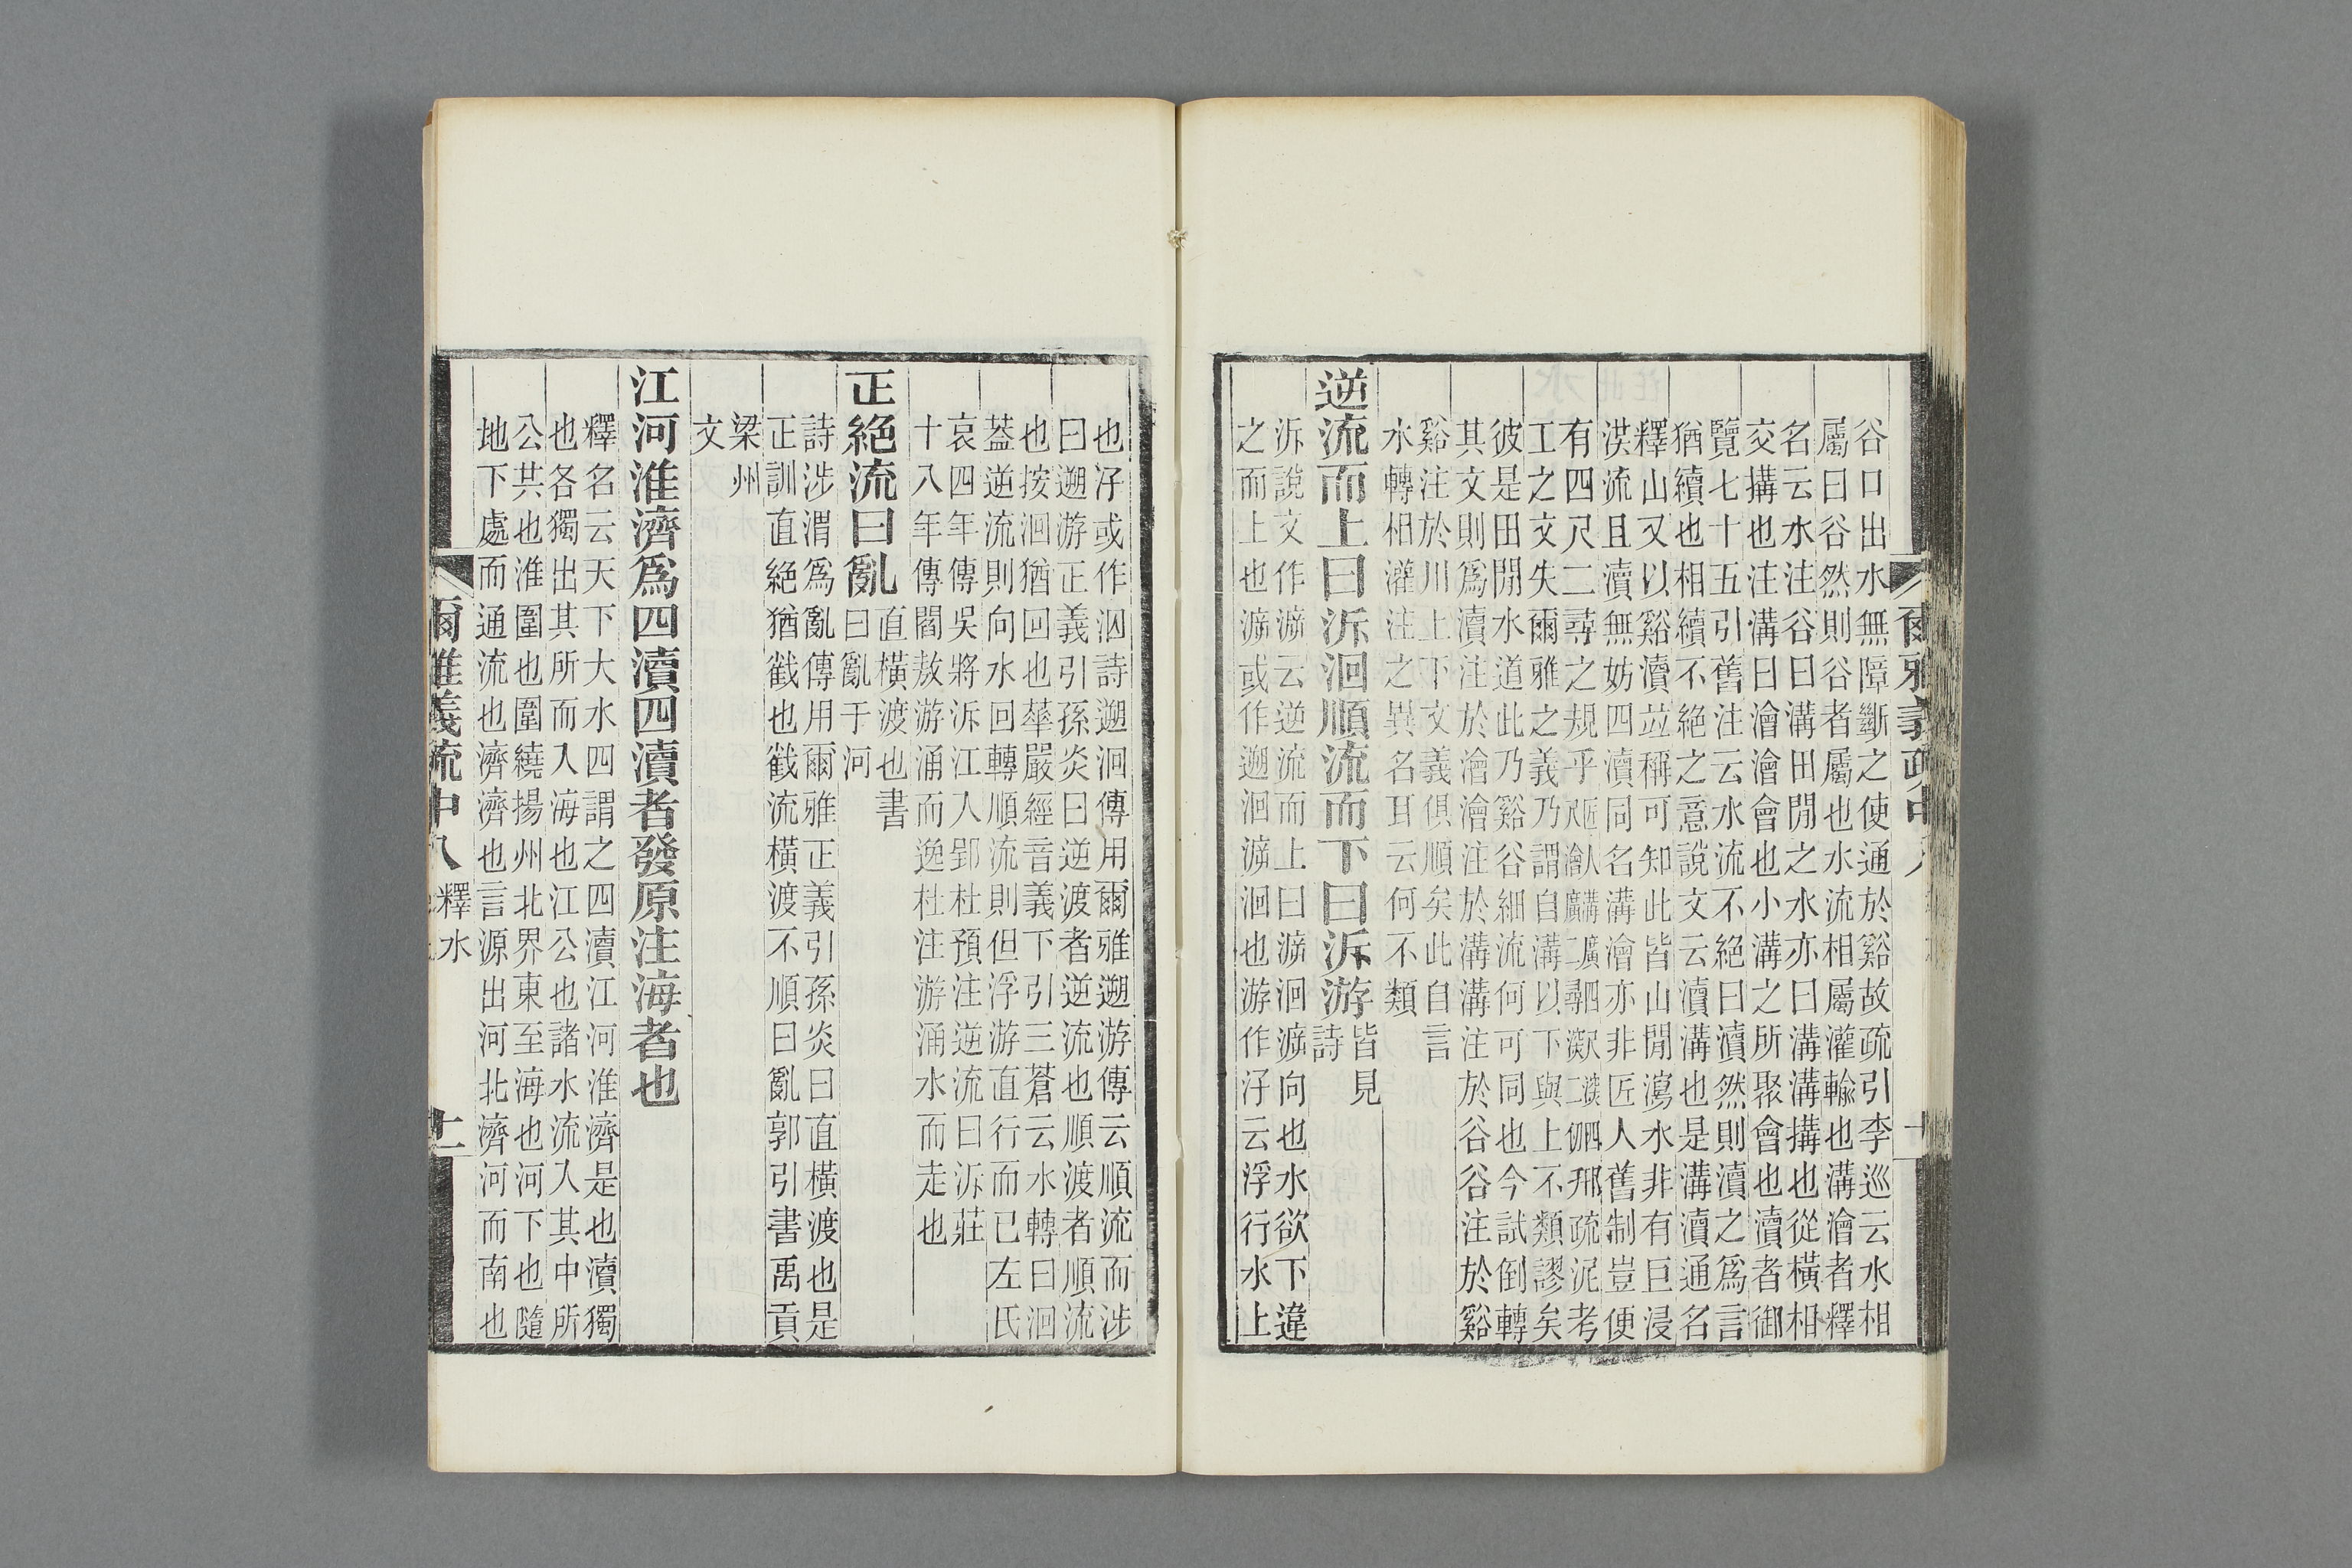 谷口出水無障斷之使通於谿故疏引李巡云水相
屬曰谷然則谷者屬也水流相屬灌輸也溝澮者釋
名云水注谷曰溝田閒之水亦曰溝溝搆也從橫相
交搆也注溝曰澮澮會也小溝之所聚會也瀆者御
覽七十五引舊注云水流不絕曰瀆然則瀆之爲言
猶續也相續不絕之意說文云瀆溝也是溝瀆通名
釋山又以谿瀆竝稱可知此皆山閒瀉水非有巨浸
洪流且瀆無妨四瀆同名溝澮亦非匠人舊制豈便
有四尺二尋之規乎
邢疏泥考
工之文失爾雅之義乃謂自溝以下與上不類謬矣
彼是田閒水道此乃谿谷細流何可同也今試倒轉
其文則爲瀆注於澮澮注於溝溝注於谷谷注於谿
谿注於川上下文義俱順矣此自言
水轉相灌注之異名耳云何不類
逆流而上曰泝洄順流而下曰泝游
皆見
詩
泝說文作㴑云逆流而上曰㴑洄㴑向也水欲下違
之而上也㴑或作遡洄㴑洄也游作汓云浮行水上
也汓或作泅詩遡洄傳用爾雅遡游傳云順流而涉
曰遡游正義引孫炎曰逆渡者逆流也順渡者順流
也按洄猶回也華嚴經音義下引三蒼云水轉曰洄
葢逆流則向水回轉順流則但浮游直行而已左氏
哀四年傳吳將泝江入郢杜預注逆流曰泝莊
十八年傳閻敖游涌而逸杜注游涌水而走也
正絕流曰亂
直橫渡也書
曰亂于河
詩涉渭爲亂傳用爾雅正義引孫炎曰直橫渡也是
正訓直絕猶截也截流橫渡不順曰亂郭引書禹貢
梁州
文
江河淮濟爲四瀆四瀆者發原注海者也
釋名云天下大水四謂之四瀆江河淮濟是也瀆獨
也各獨出其所而入海也江公也諸水流入其中所
公共也淮圍也圍繞揚州北界東至海也河下也隨
地下處而通流也濟濟也言源出河北濟河而南也
爾雅義疏中八
釋水